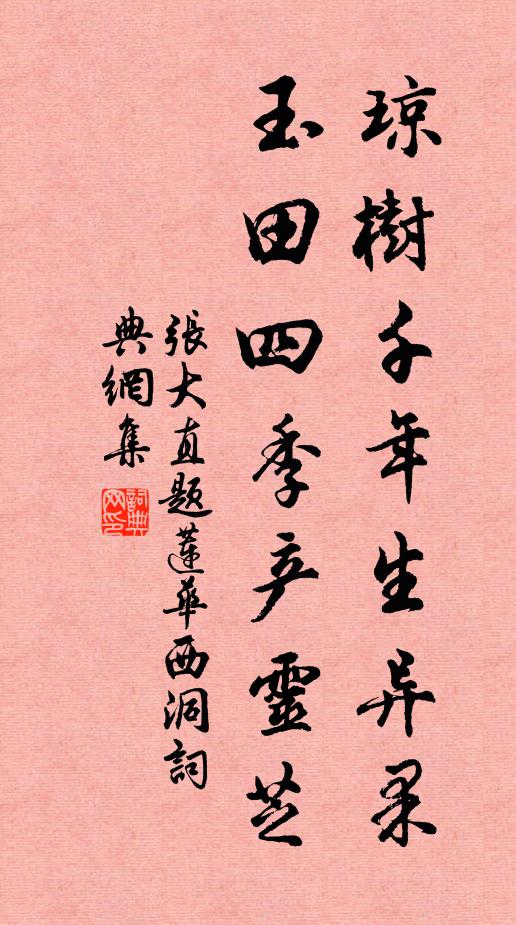 琼樹千年生异果
玉田四季产靈芝
張大直題蓮華西洞詞
典網集
詞典網印